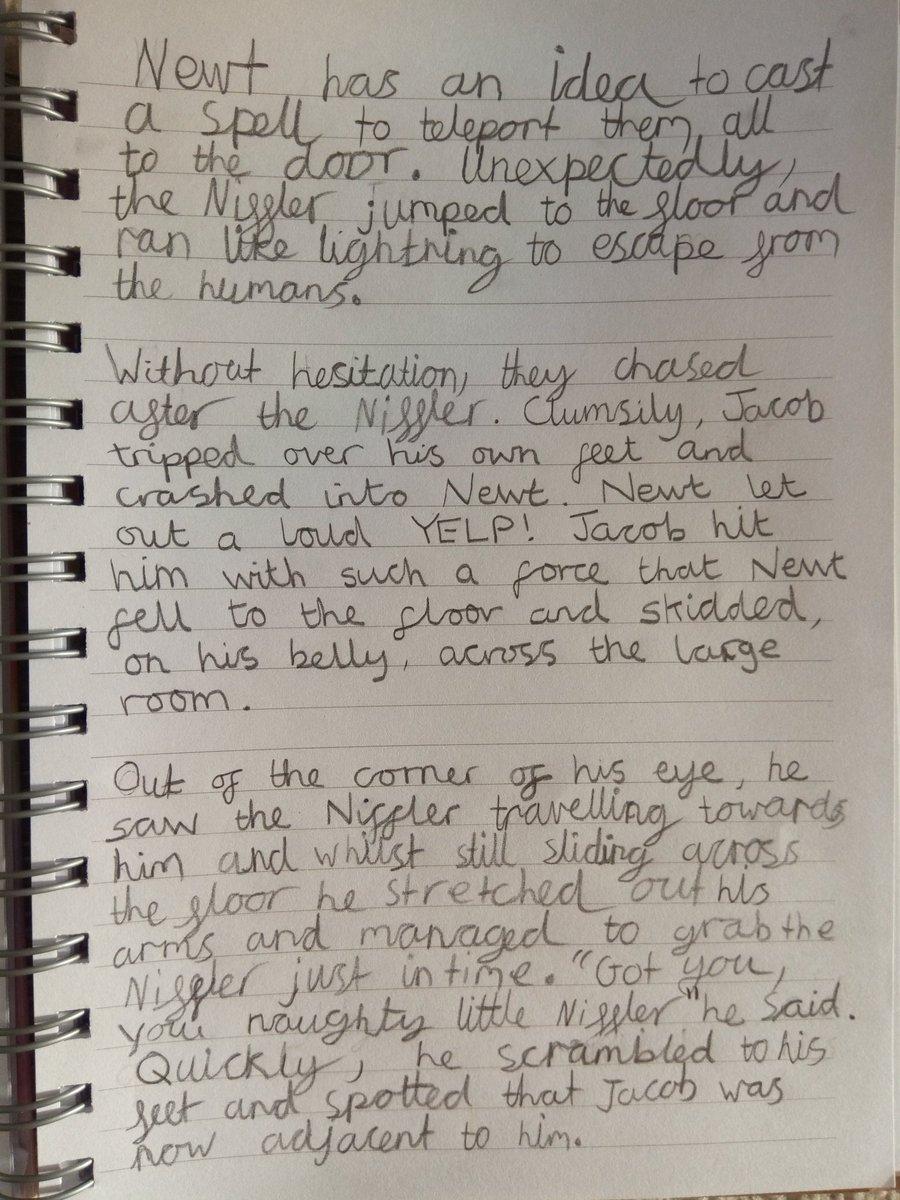 Newt has an idea to cast
a spell to teleport them, all
to the door. Unexpectedly,
the Niffler jumped to the floor and
ran like lightning to escape from
the humans.
Without hesitation, they chased
after the Niffler. Clumsily, Jacob
tripped over his own feet and
crashed into Newt. Newt let
out a loud YELP! Jacob hit
him with such a force that Newt
fell to the floor and skidded,
on his belly, across the large
room.
Out of the corner of his eye, he
saw the Niffler travelling towards
him and whilst still sliding across
the floor he stretched out his
arms and managed to grab the
Niffler just in time. "Got you,
you naughty little Niffler" he said.
Quickly, he scrambled to his
feet and spotted that Jacob was
now adjacent to him.